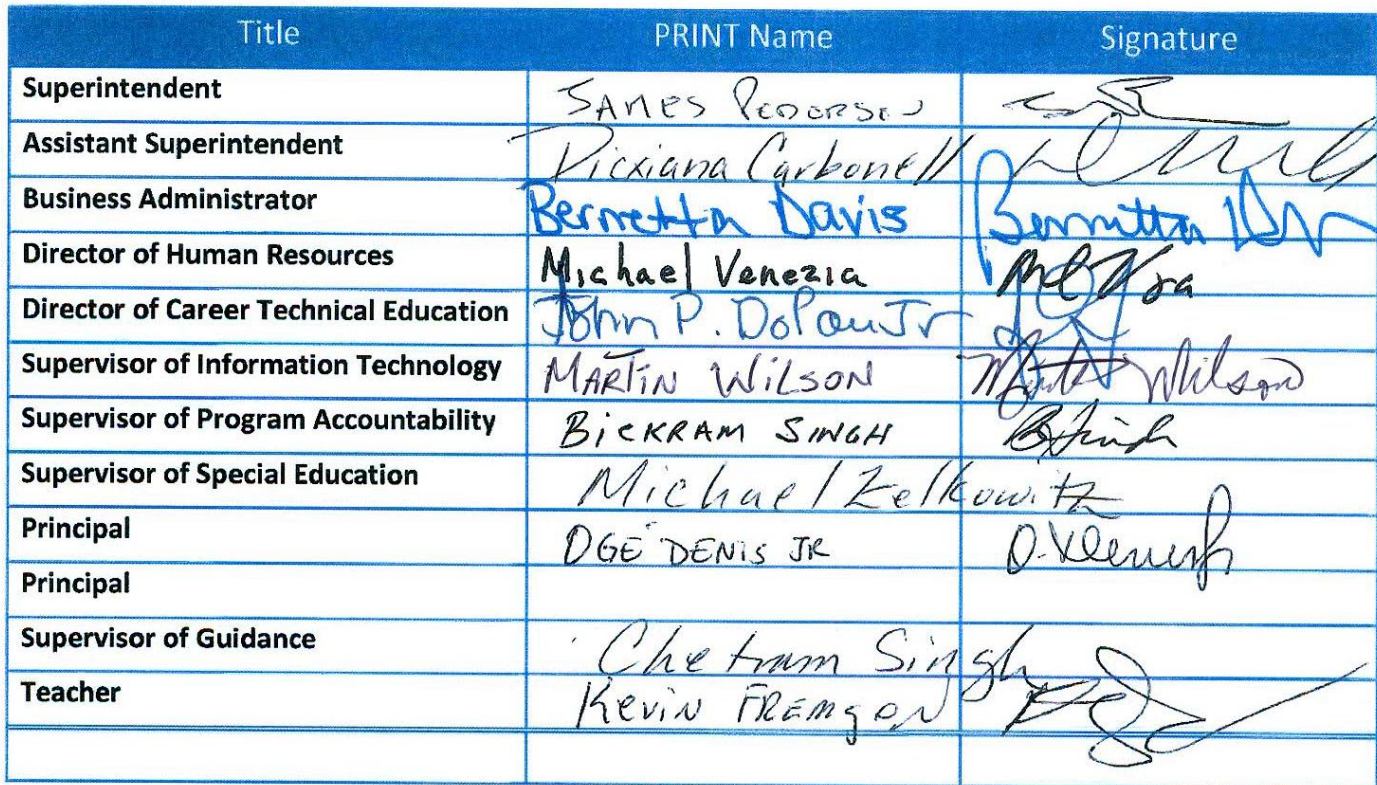 Title PRINT Name Signature
Superintendent JAMES PEDERSEN
Assistant Superintendent Dicxiana Carbonell
Business Administrator Bernetta Davis Bernetta
Director of Human Resources Michael Venezia
Director of Career Technical Education John P. Jr
Supervisor of Information Technology MARTIN WILSON Wilson
Supervisor of Program Accountability BICKRAM SINGH
Supervisor of Special Education Michael Zelkowitz
Principal OGE DENIS JR
Principal
Supervisor of Guidance Chetram Singh
Teacher Kevin